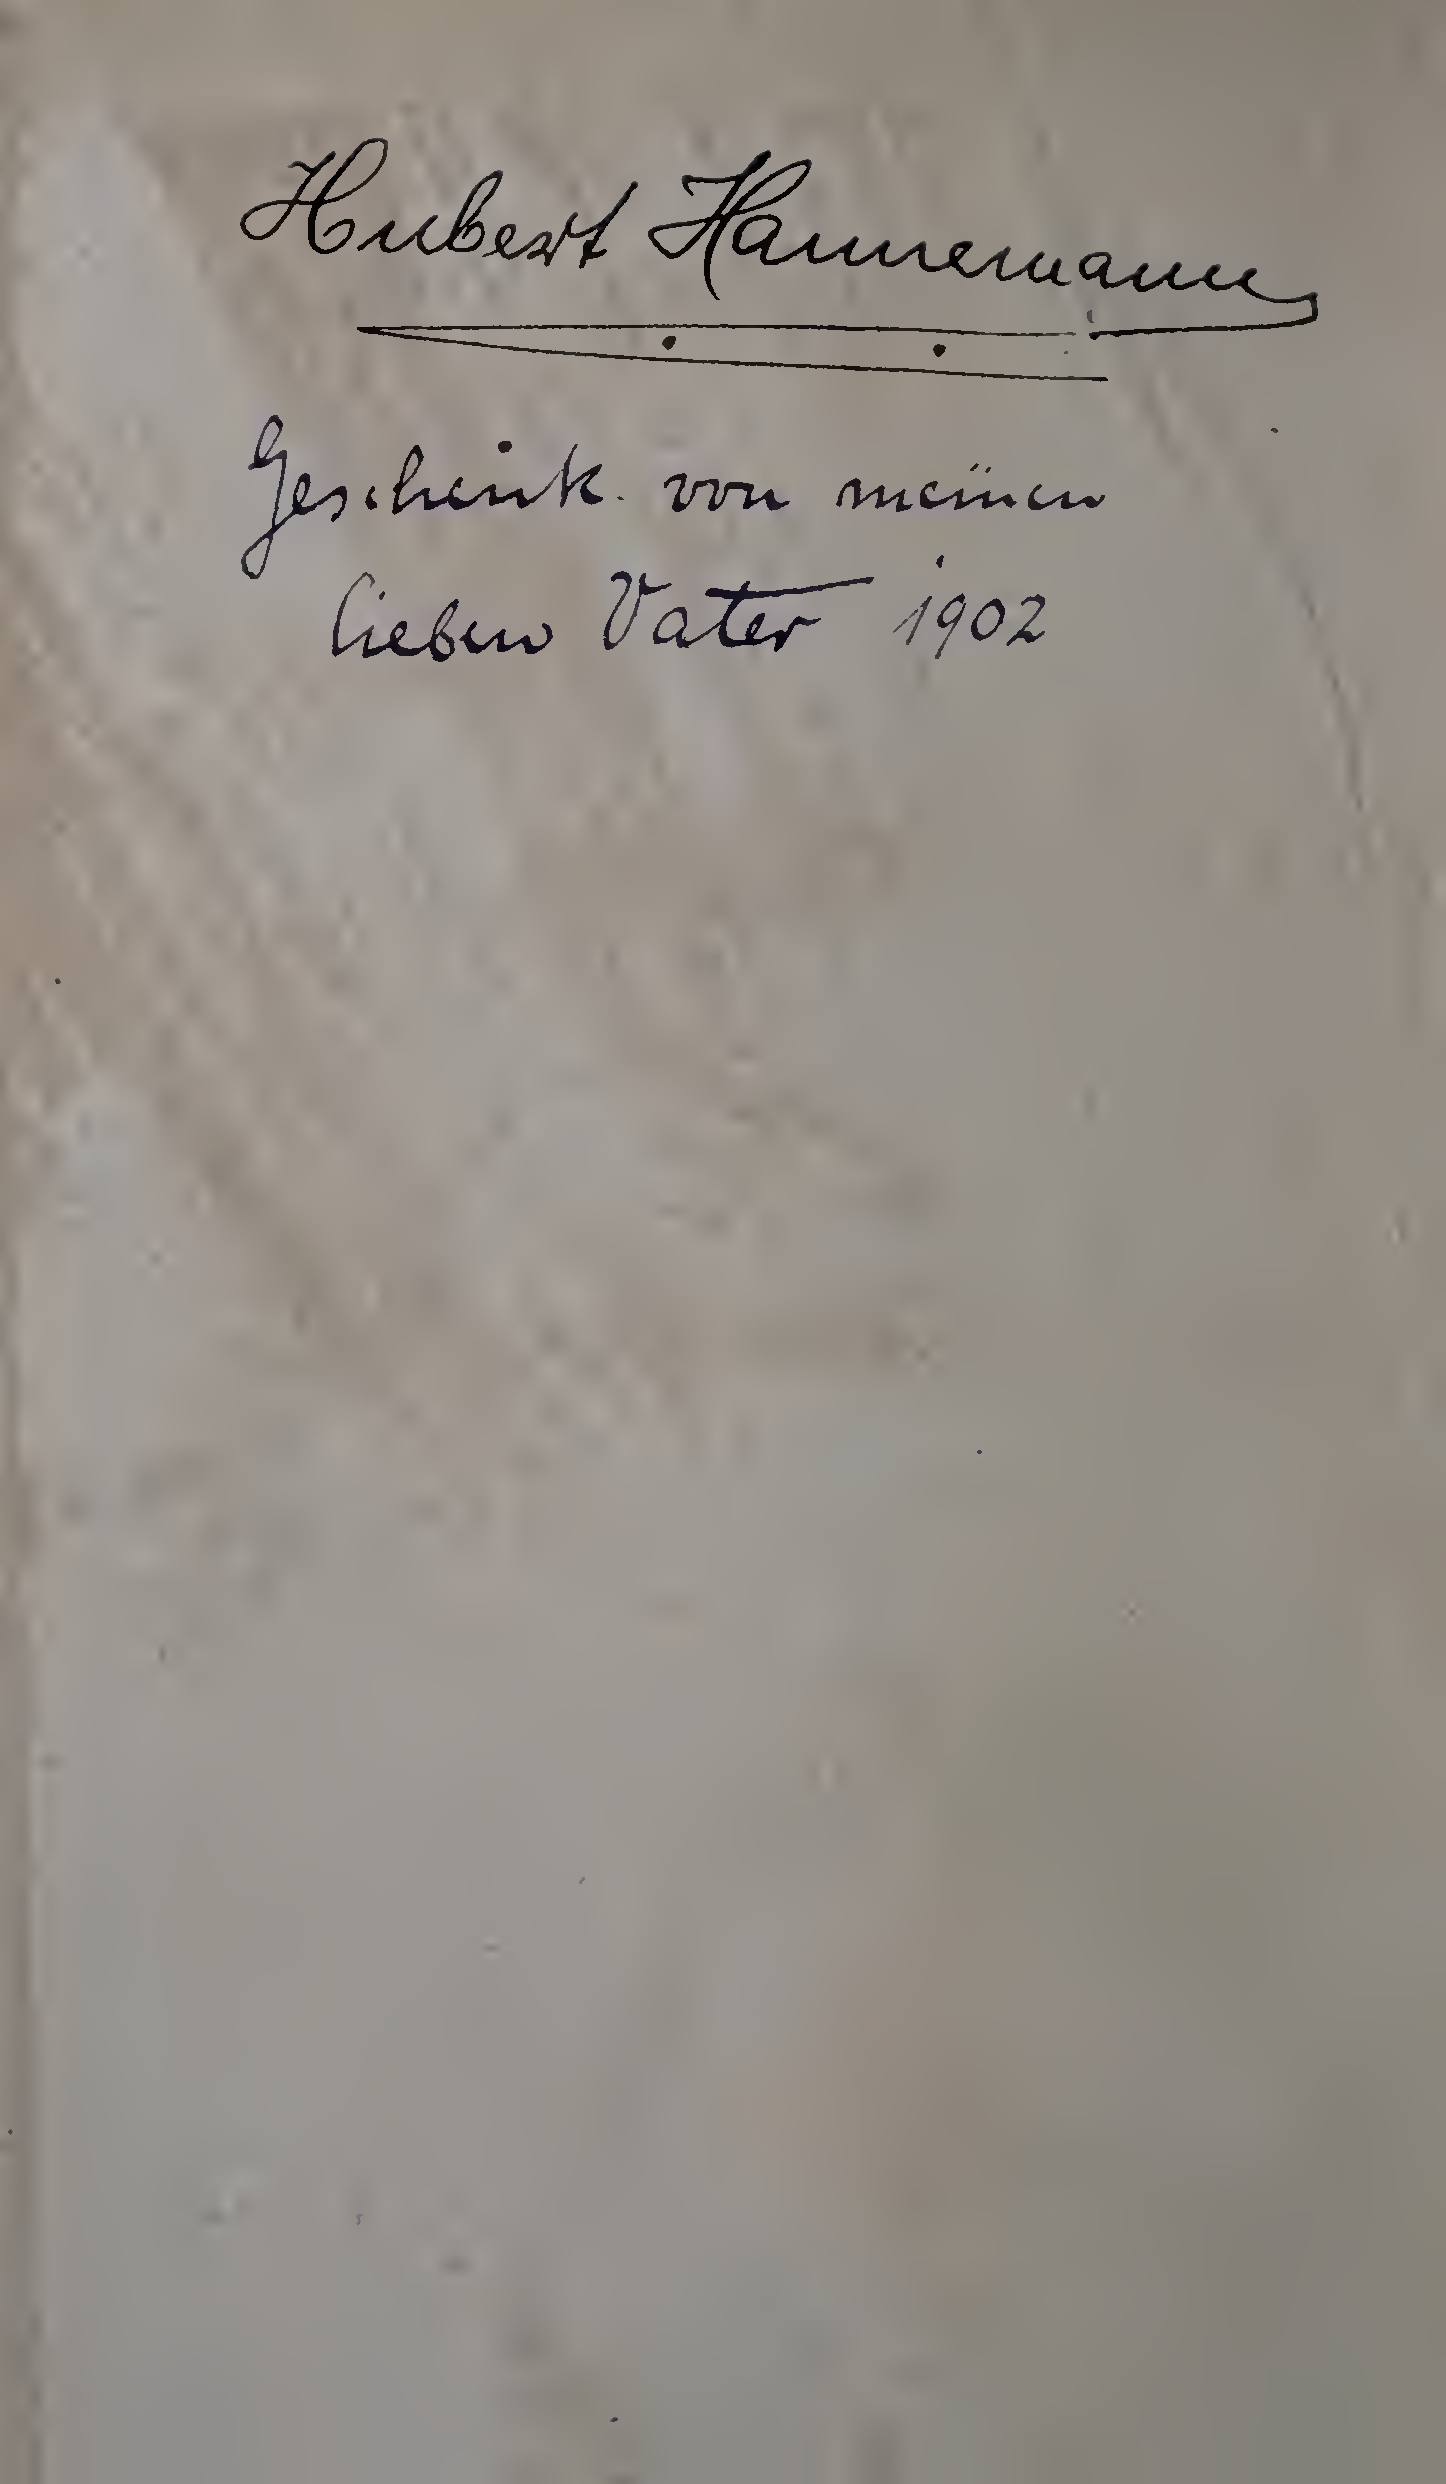 Hubert Hannemann
Geschenk von meinen
lieben Vater 1902